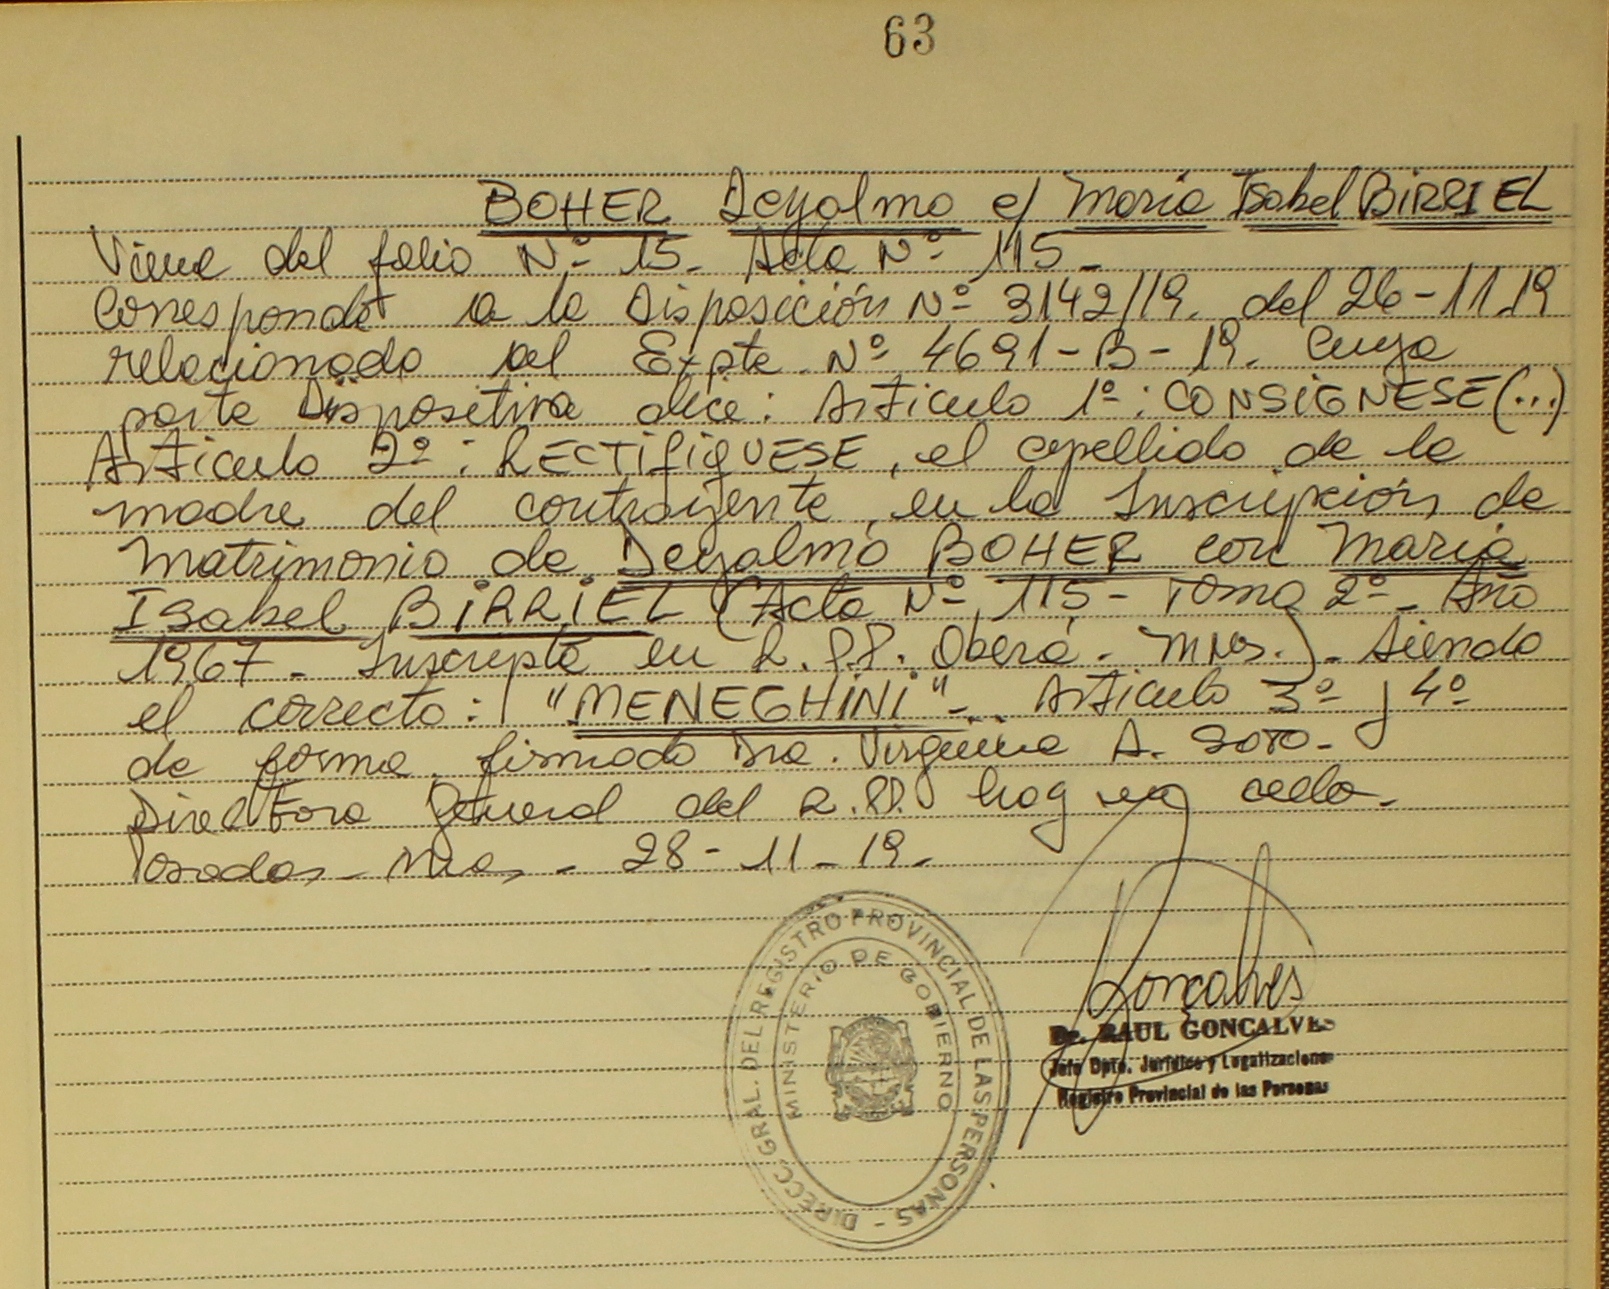 63
BOHER Deyalmo c/ Maria Isabel BIRRIEL
Viene del folio Nº 15. Acta Nº 115 -
Corresponde a la Disposición Nº 3142/19. del 26-11.19
relacionado al Expte. Nº 4691-B-19. Cuya
parte Dispositiva dice: Artículo 1º: CONSIGNESE (...)
Artículo 2º: RECTIFIQUESE, el apellido de la
madre del contrayente, en la Inscripción de
Matrimonio de Deyalmo BOHER con Maria
Isabel BIRRIEL (Acta Nº 115 - Tomo 2º - Año
1967 - Inscripta en R.PP. Oberá - Mnes.) - Siendo
el correcto: "MENEGHINI" - . Artículo 3º y 4º
de forma, firmado Dra. Virginia A. Soto -
Directora General del R.PP. hay un sello -
Posadas - Mnes, - 28 - 11 - 19 -
DIRECC. GRAL. DEL REGISTRO PROVINCIAL DE LAS PERSONAS -
MINISTERIO DE GOBIERNO
Gonçalves
Dr. RAUL GONCALVES
Jefe Dpto. Jurídico y Legalizaciones
Registro Provincial de las Personas